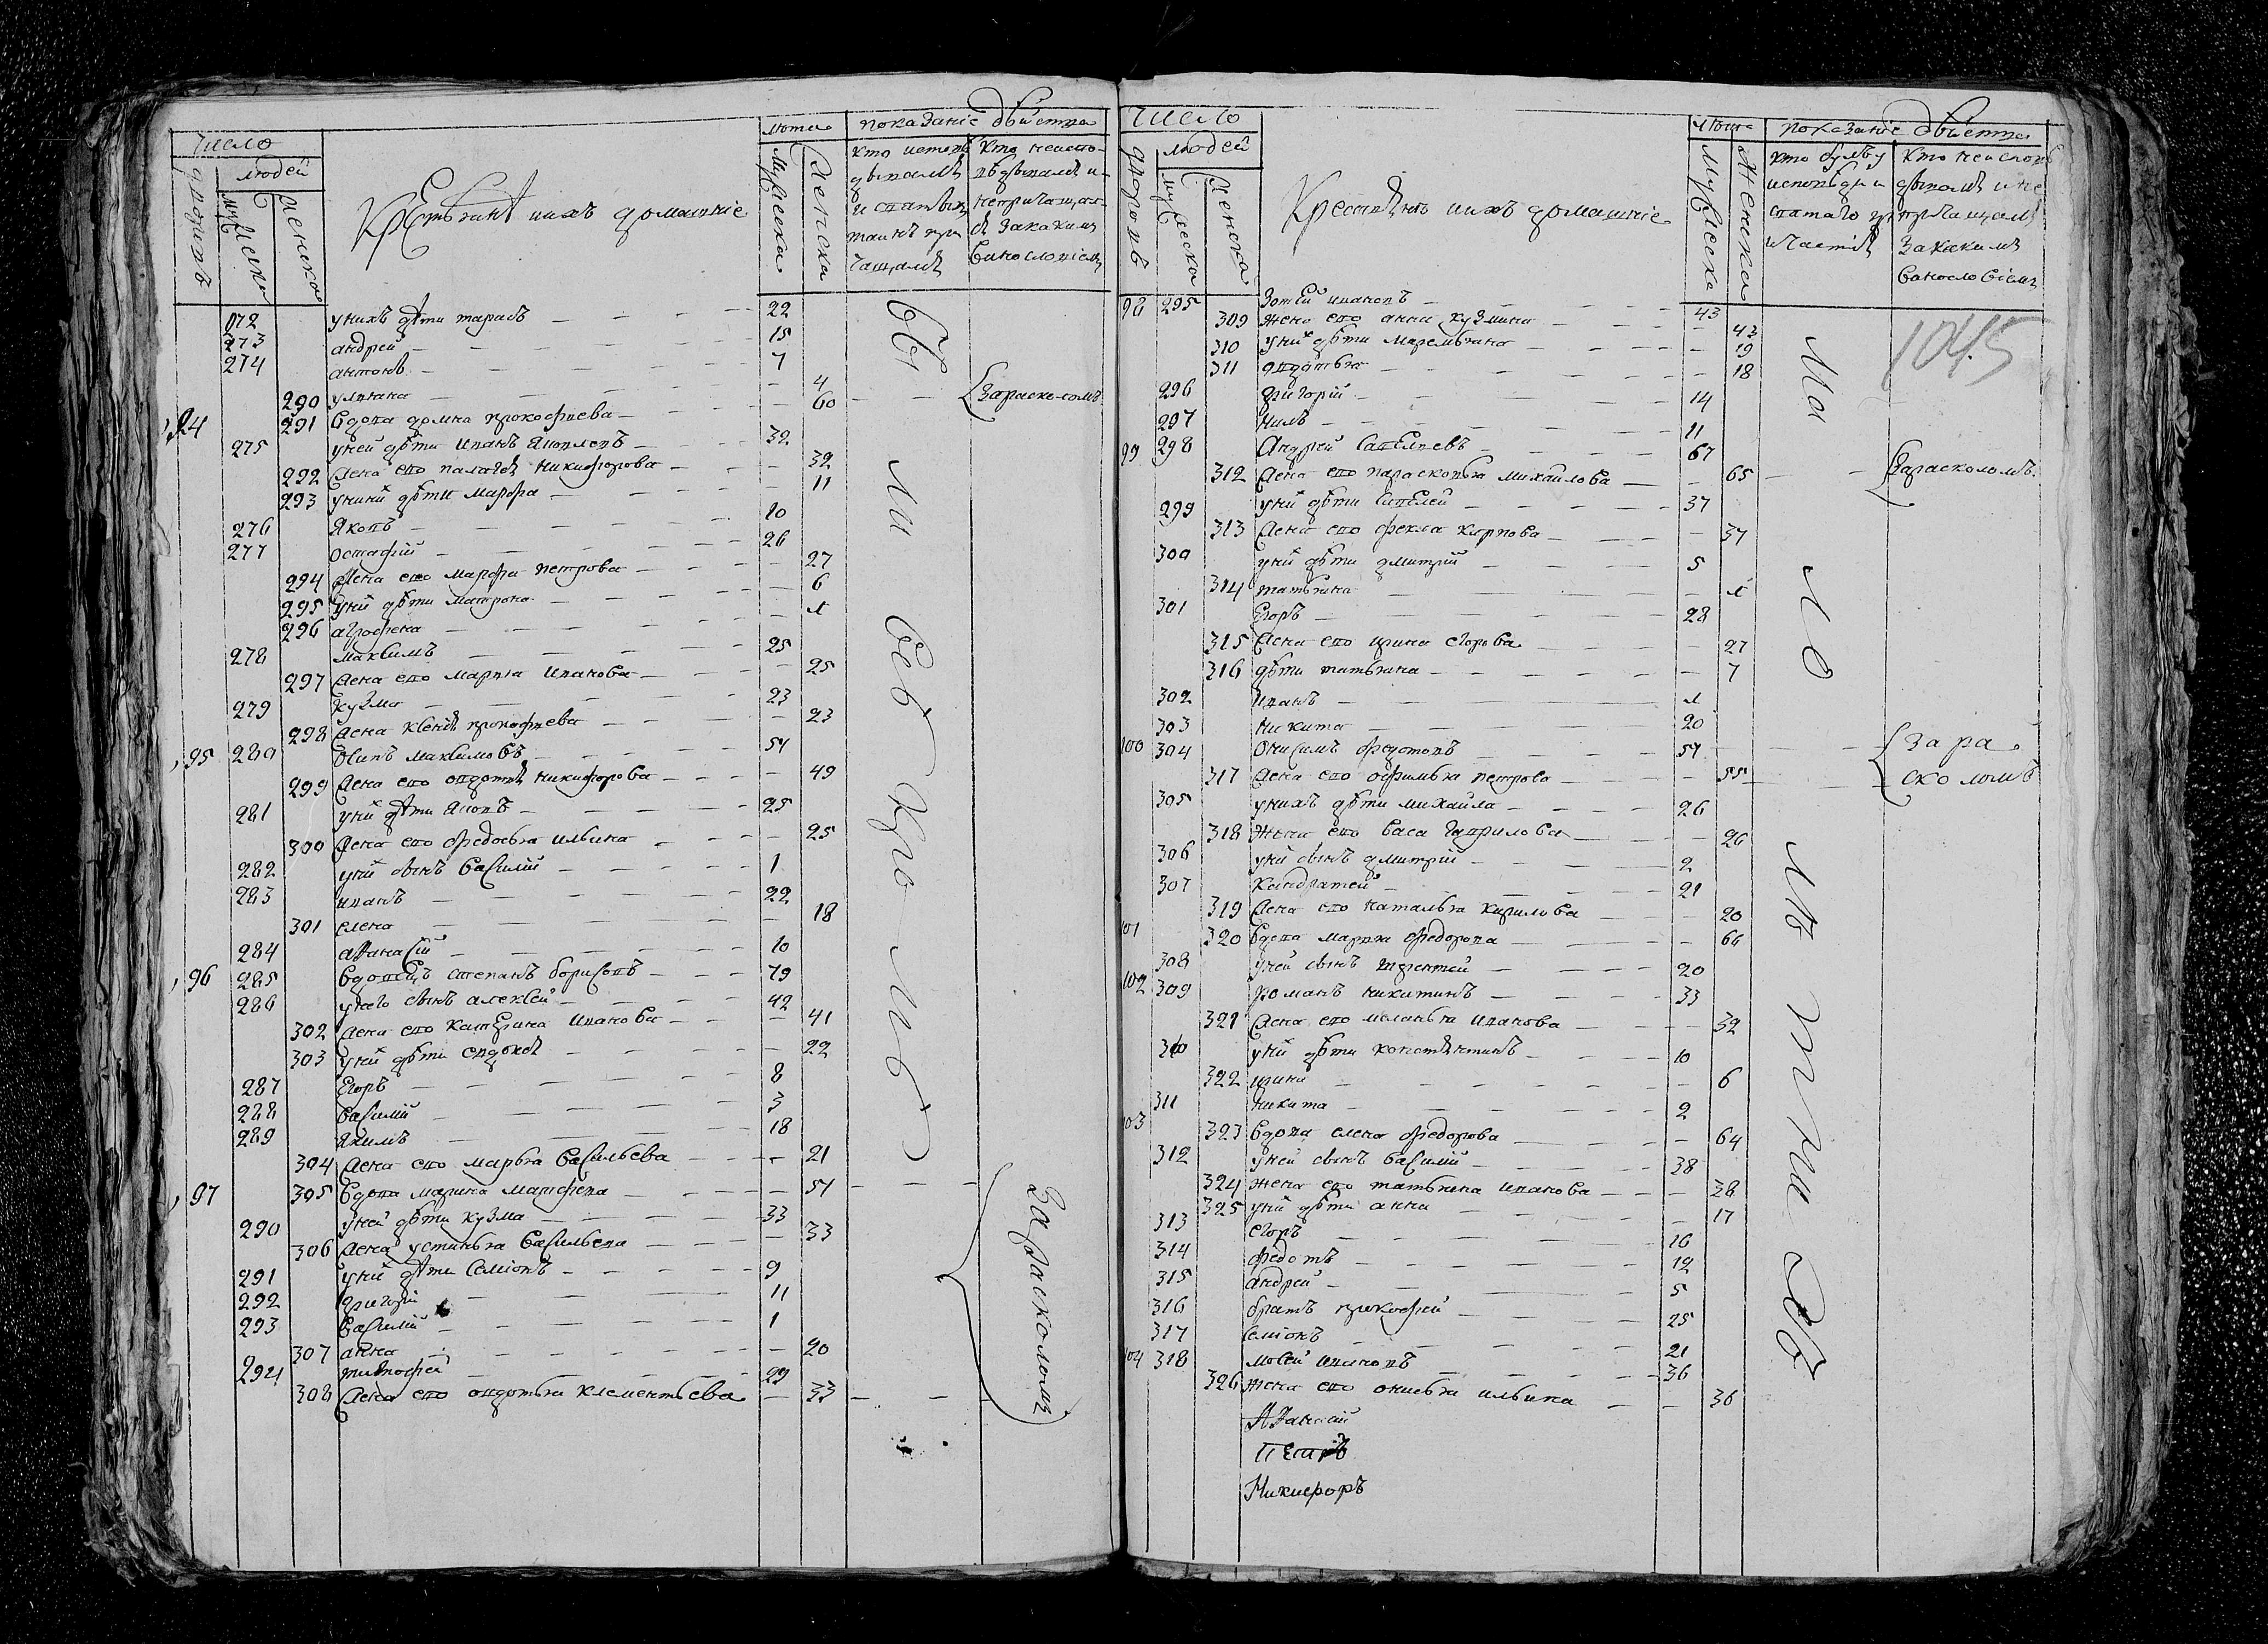 число
людей
дворовъ
мужеска
женска
Крестьянѣ и ихъ домашніе
лѣта
мужеска
женска
показаніе дѣйства
кто исповѣдывался и святыхъ таинъ причащался
кто неисповѣдывался и непричащался за какимъ винословіемъ
272 у нихъ дѣти тарасъ 22
273 андрей 15
274 антонъ 7
290 уляана 4
94 291 вдова домна прокофиева 60 За расколомъ
275 у ней дѣти иванъ яковлевъ 32
292 жена ево палагея никифорова 32
293 у ний дѣти марфа 11
276 яковъ 10
277 остафий 26
294 жена ево марфа петрова 27
295 у ний дѣти матрона 6
296 агрофена
278 максимъ 25
297 жена ево марья иванова 25
279 кузма 23
298 жена ксения прокофиева 23
95 280 осипъ максимовъ 54
299 жена ево овдотия никифорова 49
281 у ний дѣти яковъ 25
300 жена ево федосья ильина 25
282 у ний сынъ василий 1
283 иванъ 22
301 елена 18
284 афанасий 10
96 285 вдовецъ степанъ борисовъ 79
286 у него сынъ алексей 42
302 жена ево катерина иванова 41
303 у ний дѣти евдокея 22
287 егоръ 8
288 василий 3
289 якимъ 18
304 жена ево марья васильева 21
97 305 вдова марина матфеева 54
290 у ней дѣти кузма 33
306 жена устинья васильева 33
291 у ний дѣти семіонъ 9
292 григорей 11
293 василий 1
307 анна 20
294 тимофей 29
308 жена ево овдотья клементьева 33
За расколомъ
число
людей
дворовъ
мужеска
женска
Крестьянѣ и ихъ домашніе
лѣта
мужеска
женска
показаніе дѣйства
кто былъ у исповѣди и святаго причастія
кто неисповѣдывался и не причащался за какимъ винословіемъ
1045
98 295 Зотей ивановъ 43
309 жена ево анна кузмина 43
310 у них дѣти маремьяна 19
311 овдотья 18
296 григорій 14
297 нилъ 11
99 298 Андрей савельевъ 67
312 жена ево парасковья михайлова 65 За расколомъ
299 у ний дѣти савелей 37
313 жена ево фекла карпова 37
300 у ний дѣти дмитрий 5
314 татьяна
301 егоръ 28
315 жена ево ирина егорова 27
316 дѣти татьяна 7
302 иванъ
303 никита 20
100 304 онисимъ федотовъ 54 За расколомъ
317 жена ево офимья петрова 55
305 у нихъ дѣти михайла 26
318 жена ево васа гаврилова 26
306 у ний сынъ дмитрий 2
307 кандратей 21
319 жена ево наталья кирилова 20
101 320 вдова марья федорова 66
308 у ней сынъ терентей 20
102 309 романъ никитинъ 33
321 жена ево меланья иванова 32
310 у ний дѣти константинъ 10
322 ирина 6
311 никита 2
103 323 вдова елена федорова 64
312 у ней сынъ василий 38
324 жена ево татьяна иванова 38
325 у ний дѣти анна 17
313 егоръ 16
314 федотъ 12
315 андрей 5
316 братъ прокофей 25
317 семіонъ 21
104 318 мосей ивановъ 36
326 жена ево онисья ильина 36
Афанасий
Петръ
Никифоръ